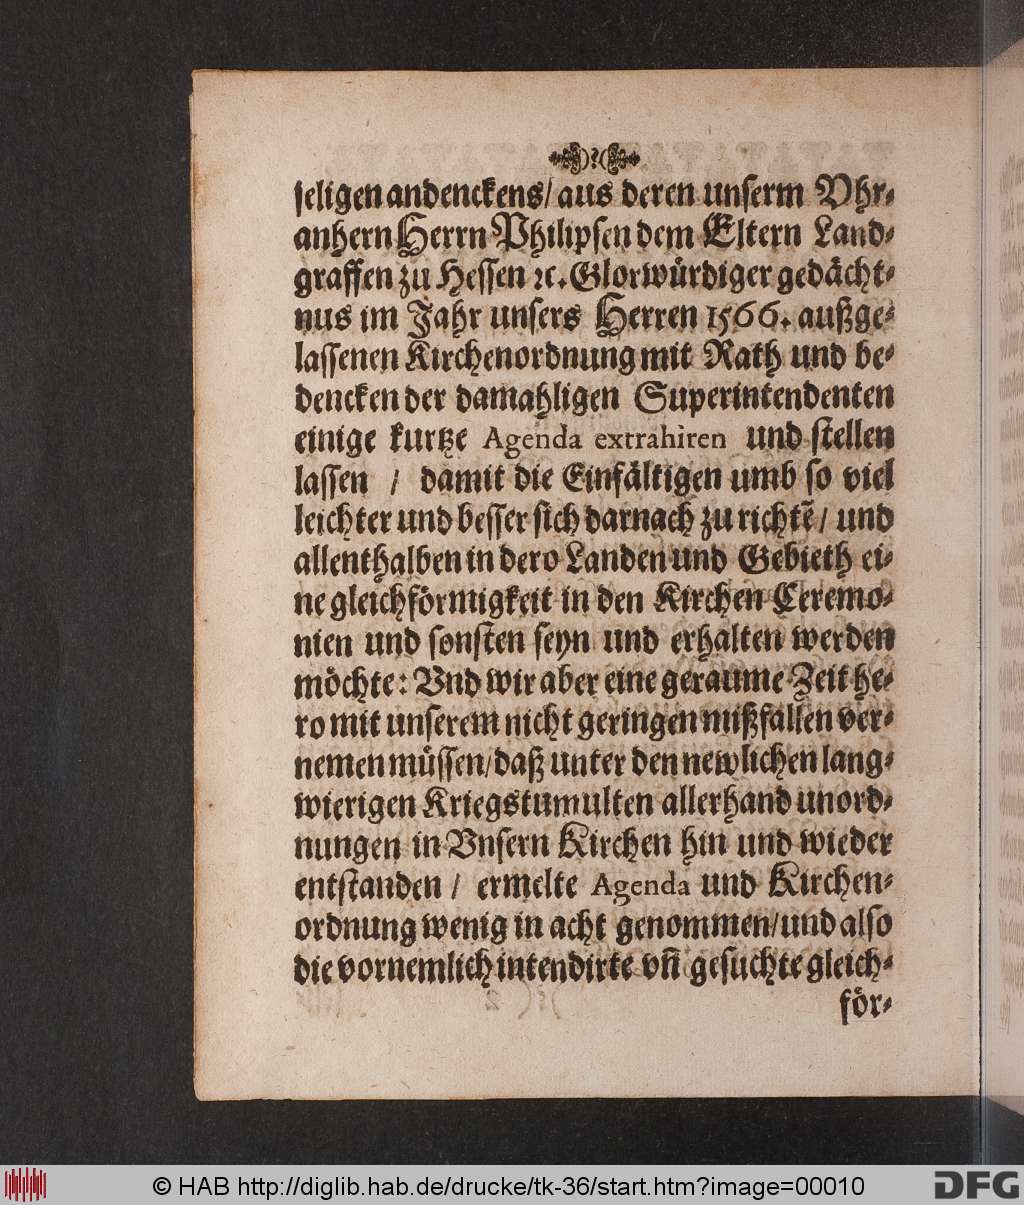 )?(
seligen andenckens/ aus deren unserm Vhr-
anhern Herrn Philipsen dem Eltern Land-
graffen zu Hessen ꝛc. Glorwürdiger gedächt-
nus im Jahr unsers Herren 1566. außge-
lassenen Kirchenordnung mit Rath und be-
dencken der damahligen Superintendenten
einige kurtze Agenda extrahiren und stellen
lassen / damit die Einfältigen umb so viel
leichter und besser sich darnach zu richtẽ/ und
allenthalben in dero Landen und Gebieth ei-
ne gleichförmigkeit in den Kirchen Ceremo-
nien und sonsten seyn und erhalten werden
möchte: Vnd wir aber eine geraume Zeit he-
ro mit unserem nicht geringen mißfallen ver-
nemen müssen/ daß unter den newlichen lang-
wierigen Kriegstumulten allerhand unord-
nungen in Vnsern Kirchen hin und wieder
entstanden / ermelte Agenda und Kirchen-
ordnung wenig in acht genommen/ und also
die vornemlich intendirte vñ gesuchte gleich-
för-
© HAB http://diglib.hab.de/drucke/tk-36/start.htm?image=00010
DFG